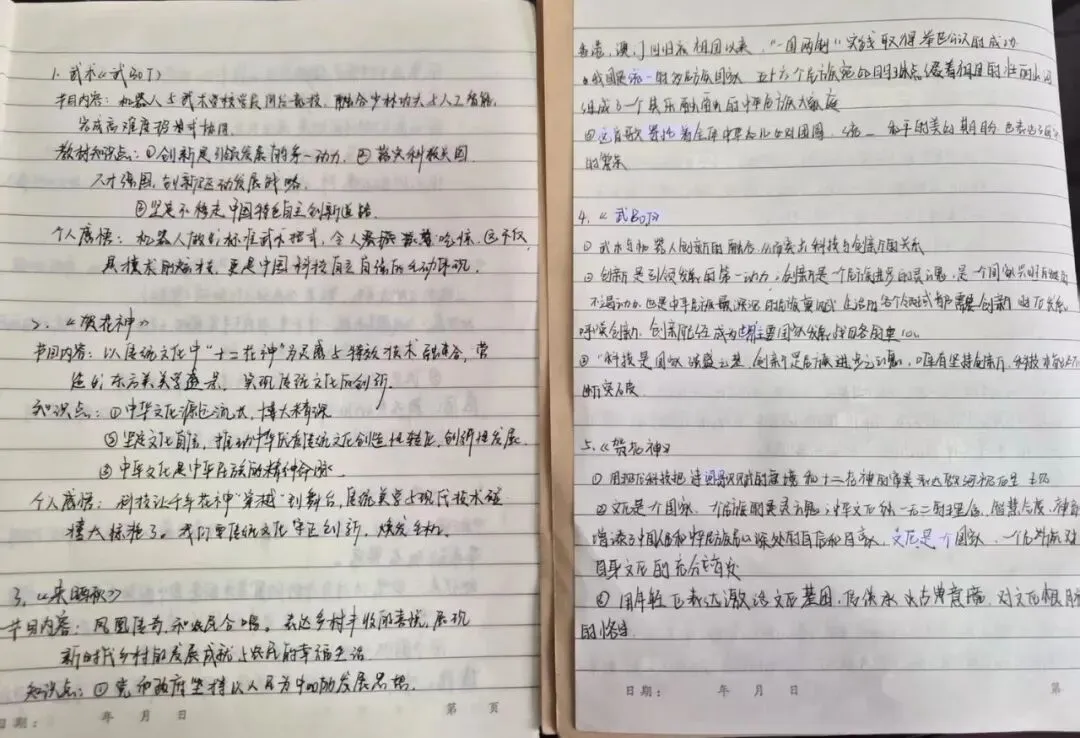 1. 武术《武BOT》
节目内容：机器人与武术学校学员同台竞技，融合少林功夫与人工智能，
完成高难度招式协同。
教材知识点：①创新是引领发展的第一动力，②落实科教兴国
人才强国，创新驱动发展战略
③坚定不移走中国特色自主创新道路
个人感悟：机器人做出标准武术招式，令人吃惊，这不仅
是技术的炫技，更是中国科技自立自强的生动体现。
2、《贺花神》
节目内容：以传统文化中"十二花神"为灵感与特效技术融合，营
造出东方美学盛景，实现传统文化的创新。
知识点：①中华文化源远流长，博大精深
②坚定文化自信，推动中华优秀传统文化创造性转化，创新性发展
③中华文化是中华民族的精神命脉
个人感悟：科技让千年花神"穿越"到舞台，传统美学与现代技术碰
撞太惊艳了。我们要传统文化守正创新，焕发生机。
3、
节目内容：凤凰传奇和农民合唱。表达乡村丰收的喜悦，展现
新时代乡村的发展成就与农民的幸福生活
知识点：①党和政府坚持以人民为中心的发展思想
日期： 年 月 日 第 页
香港，澳门回归祖国以来，"一国两制"实践取得举世公认的成功
我国是统一的多民族国家 五十六个民族
组成了一个 的中华民族大家庭
②这首歌 着全体中华儿女对团圆、统一、和平的美好期盼 也表达了
的繁荣
4、《武BOT》
① 武术与机器人创新的融合，从而突出科技与创新的关系
② 创新是引领发展的第一动力，创新是一个民族进步的灵魂，是一个国家兴旺发达的
不竭动力，也是中华民族最深沉的民族禀赋 生活的各个领域都需要创新
呼唤创新，创新能经成为世界主要国家发展战略的重心
③ "科技是国家强盛之基，创新是民族进步之魂，唯有坚持创新，科技才能
5、《贺花神》
① 用现代科技把诗词歌赋的意境和十二花神的唯美
② 文化是一个国家、一个民族的灵魂
增添了中国人民和中华民族内心深处的自信和自豪，文化是一个国家、一个民族对
自身文化的充分
日期： 年 月 日 第